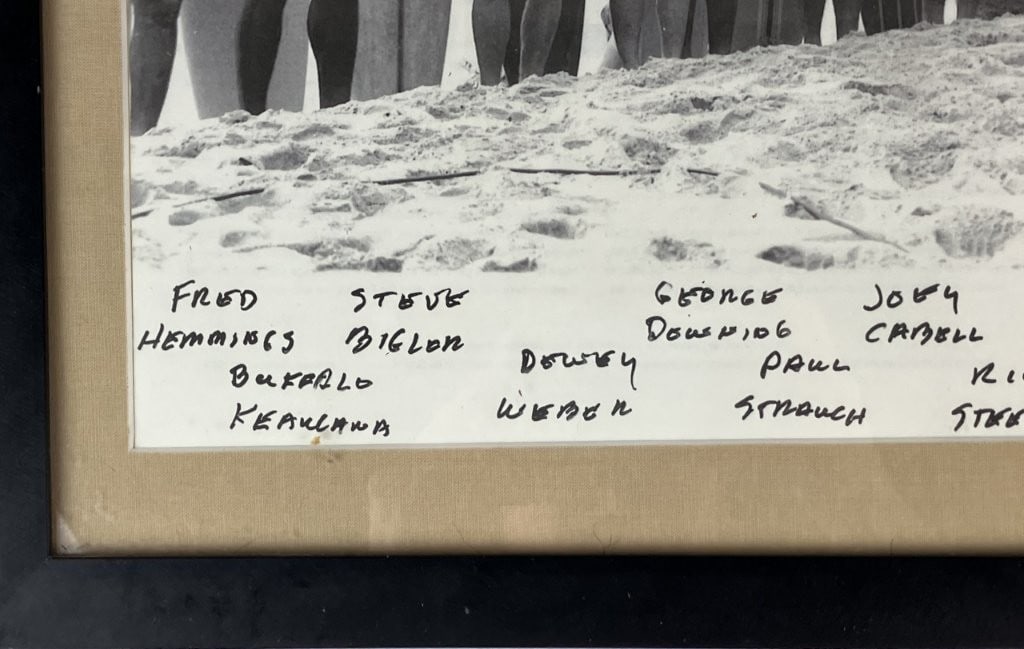 FRED STEVE GEORGE JOEY
HEMMINGS BIGLOR DOWNING CABELL
BUFFALO DEWEY PAUL RI
KEAULANA WEBER STRAUCH STEE